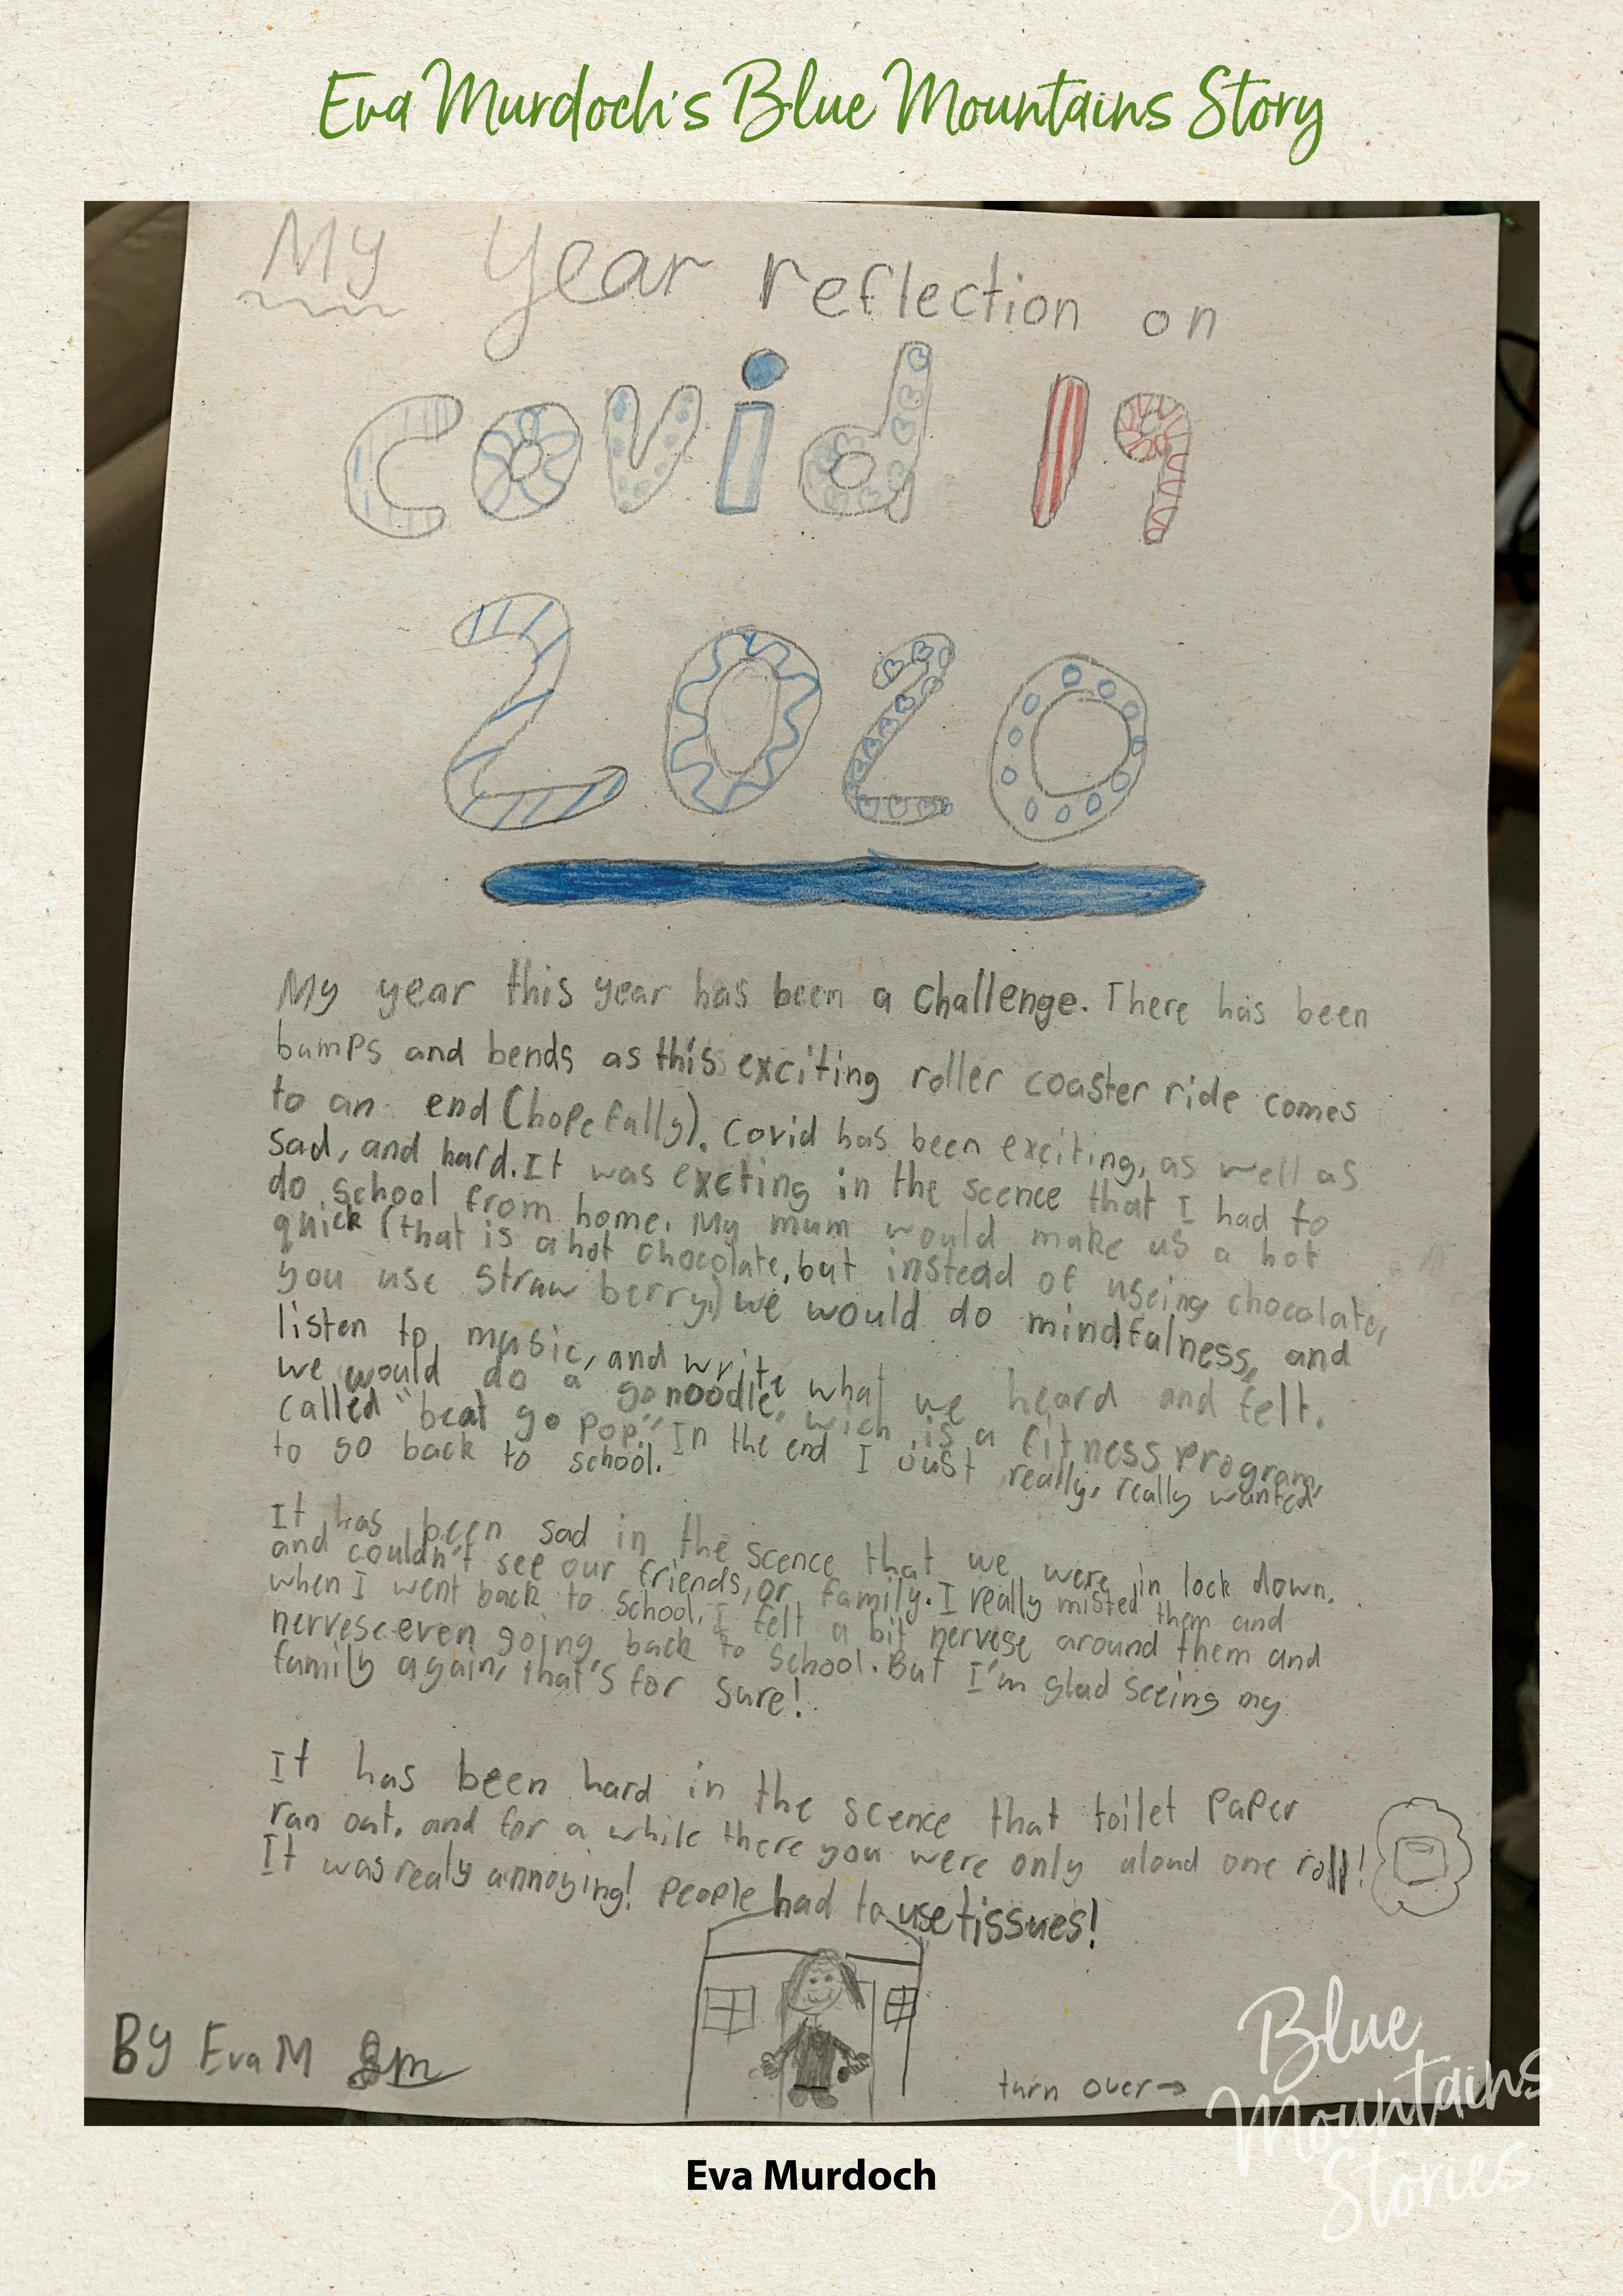 Eva Murdoch's Blue Mountains Story
My Year reflection on
covid 19
2020
My year this year has been a challenge. There has been
bumps and bends as this exciting roller coaster ride comes
to an end (hopefully). Covid has been exciting, as well as
sad, and hard. It was excting in the scence that I had to
do school from home. My mum would make us a hot
quick (that is a hot chocolate, but instead of useing chocolate,
you use straw berry,) we would do mindfulness, and
listen to music, and write what we heard and felt.
we would do a go noodle, wich is a fitness program,
called "beat go pop." In the end I Just really, really wanted
to go back to school.
It has been sad in the scence that we were in lock down.
and couldn't see our friends, or family. I really missed them and
when I went back to school, I felt a bit nervese around them and
nervese even going back to school. But I'm glad seeing my
family again, that's for sure!
It has been hard in the scence that toilet paper
ran out, and for a while there you were only aloud one roll!
It was realy annoying! People had to use tissues!
By Eva M
turn over→
Blue
Mountains
Stories
Eva Murdoch